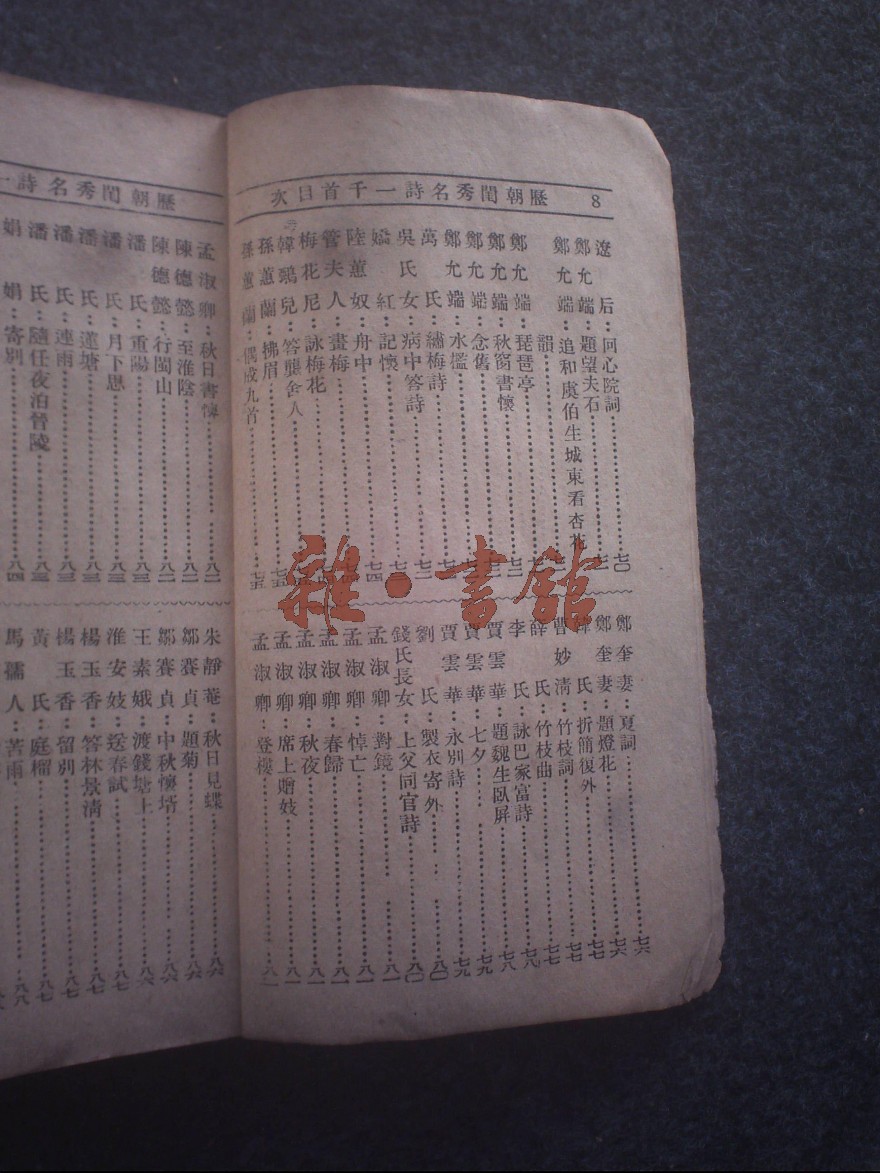 8 歷朝閨秀名詩一千首目次
遼后：回心院詞……七〇
鄭允端：題望夫石……七一
鄭允端：追和虞伯生城東看杏花
韻
鄭允端：琵琶亭……七一
鄭允端：秋窗書懷
鄭允端：念舊
鄭允端：水檻
萬氏：繡梅詩……七二
吳氏女：病中答詩……七三
嬌紅：記懷……七四
陸蕙奴：舟中
管夫人：畫梅
梅花尼：詠梅花
韓鵞兒：答龔舍人
孫蕙蘭：拂眉……七五
孫蕙蘭：偶成九首……七五
鄭奎妻：夏詞……七六
鄭奎妻：題燈花……七六
韓氏：折簡復外……七七
曹妙清：竹枝詞……七七
薛氏：竹枝曲……七七
李氏：詠巴家富詩……七八
賈雲華：題魏生臥屏……七八
賈雲華：七夕……七九
賈雲華：永別詩……七九
劉氏：製衣寄外……八〇
錢氏長女：上父同官詩……八〇
孟淑卿：對鏡……八一
孟淑卿：悼亡……八一
孟淑卿：春歸……八一
孟淑卿：秋夜……八一
孟淑卿：席上贈妓……八一
孟淑卿：登樓……八一
歷朝閨秀名詩一
孟淑卿：秋日書懷……八二
陳德懿：至淮陰……八二
陳德懿：行閩山……八二
潘氏：重陽……八三
潘氏：月下思……八三
潘氏：蓮塘……八三
潘氏：連雨……八三
潘氏：隨任夜泊晉陵……八三
娟娟：寄別……八四
朱靜菴：秋日見蝶……八六
鄒賽貞：題菊……八六
鄒賽貞：中秋懷壻……八六
王素娥：渡錢塘上……八六
淮安妓：送春試……八七
楊玉香：答林景清……八七
楊玉香：留別……八七
黃氏：庭榴……八七
馬孺人：苦雨……八八
雜·書館